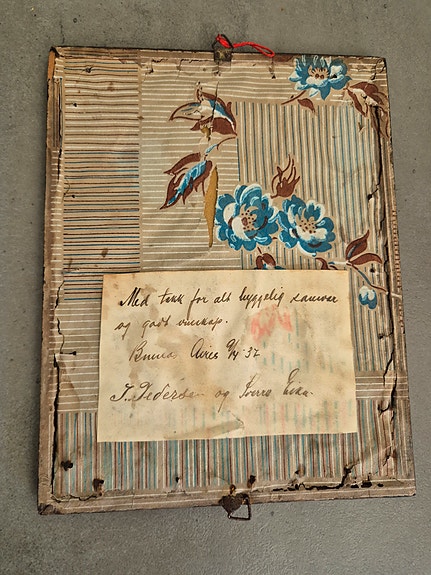 Med takk for alt hyggelig samvær
og godt vennskap.
Buenos Aires 9/4 - 32
T. Pedersen og Sverre